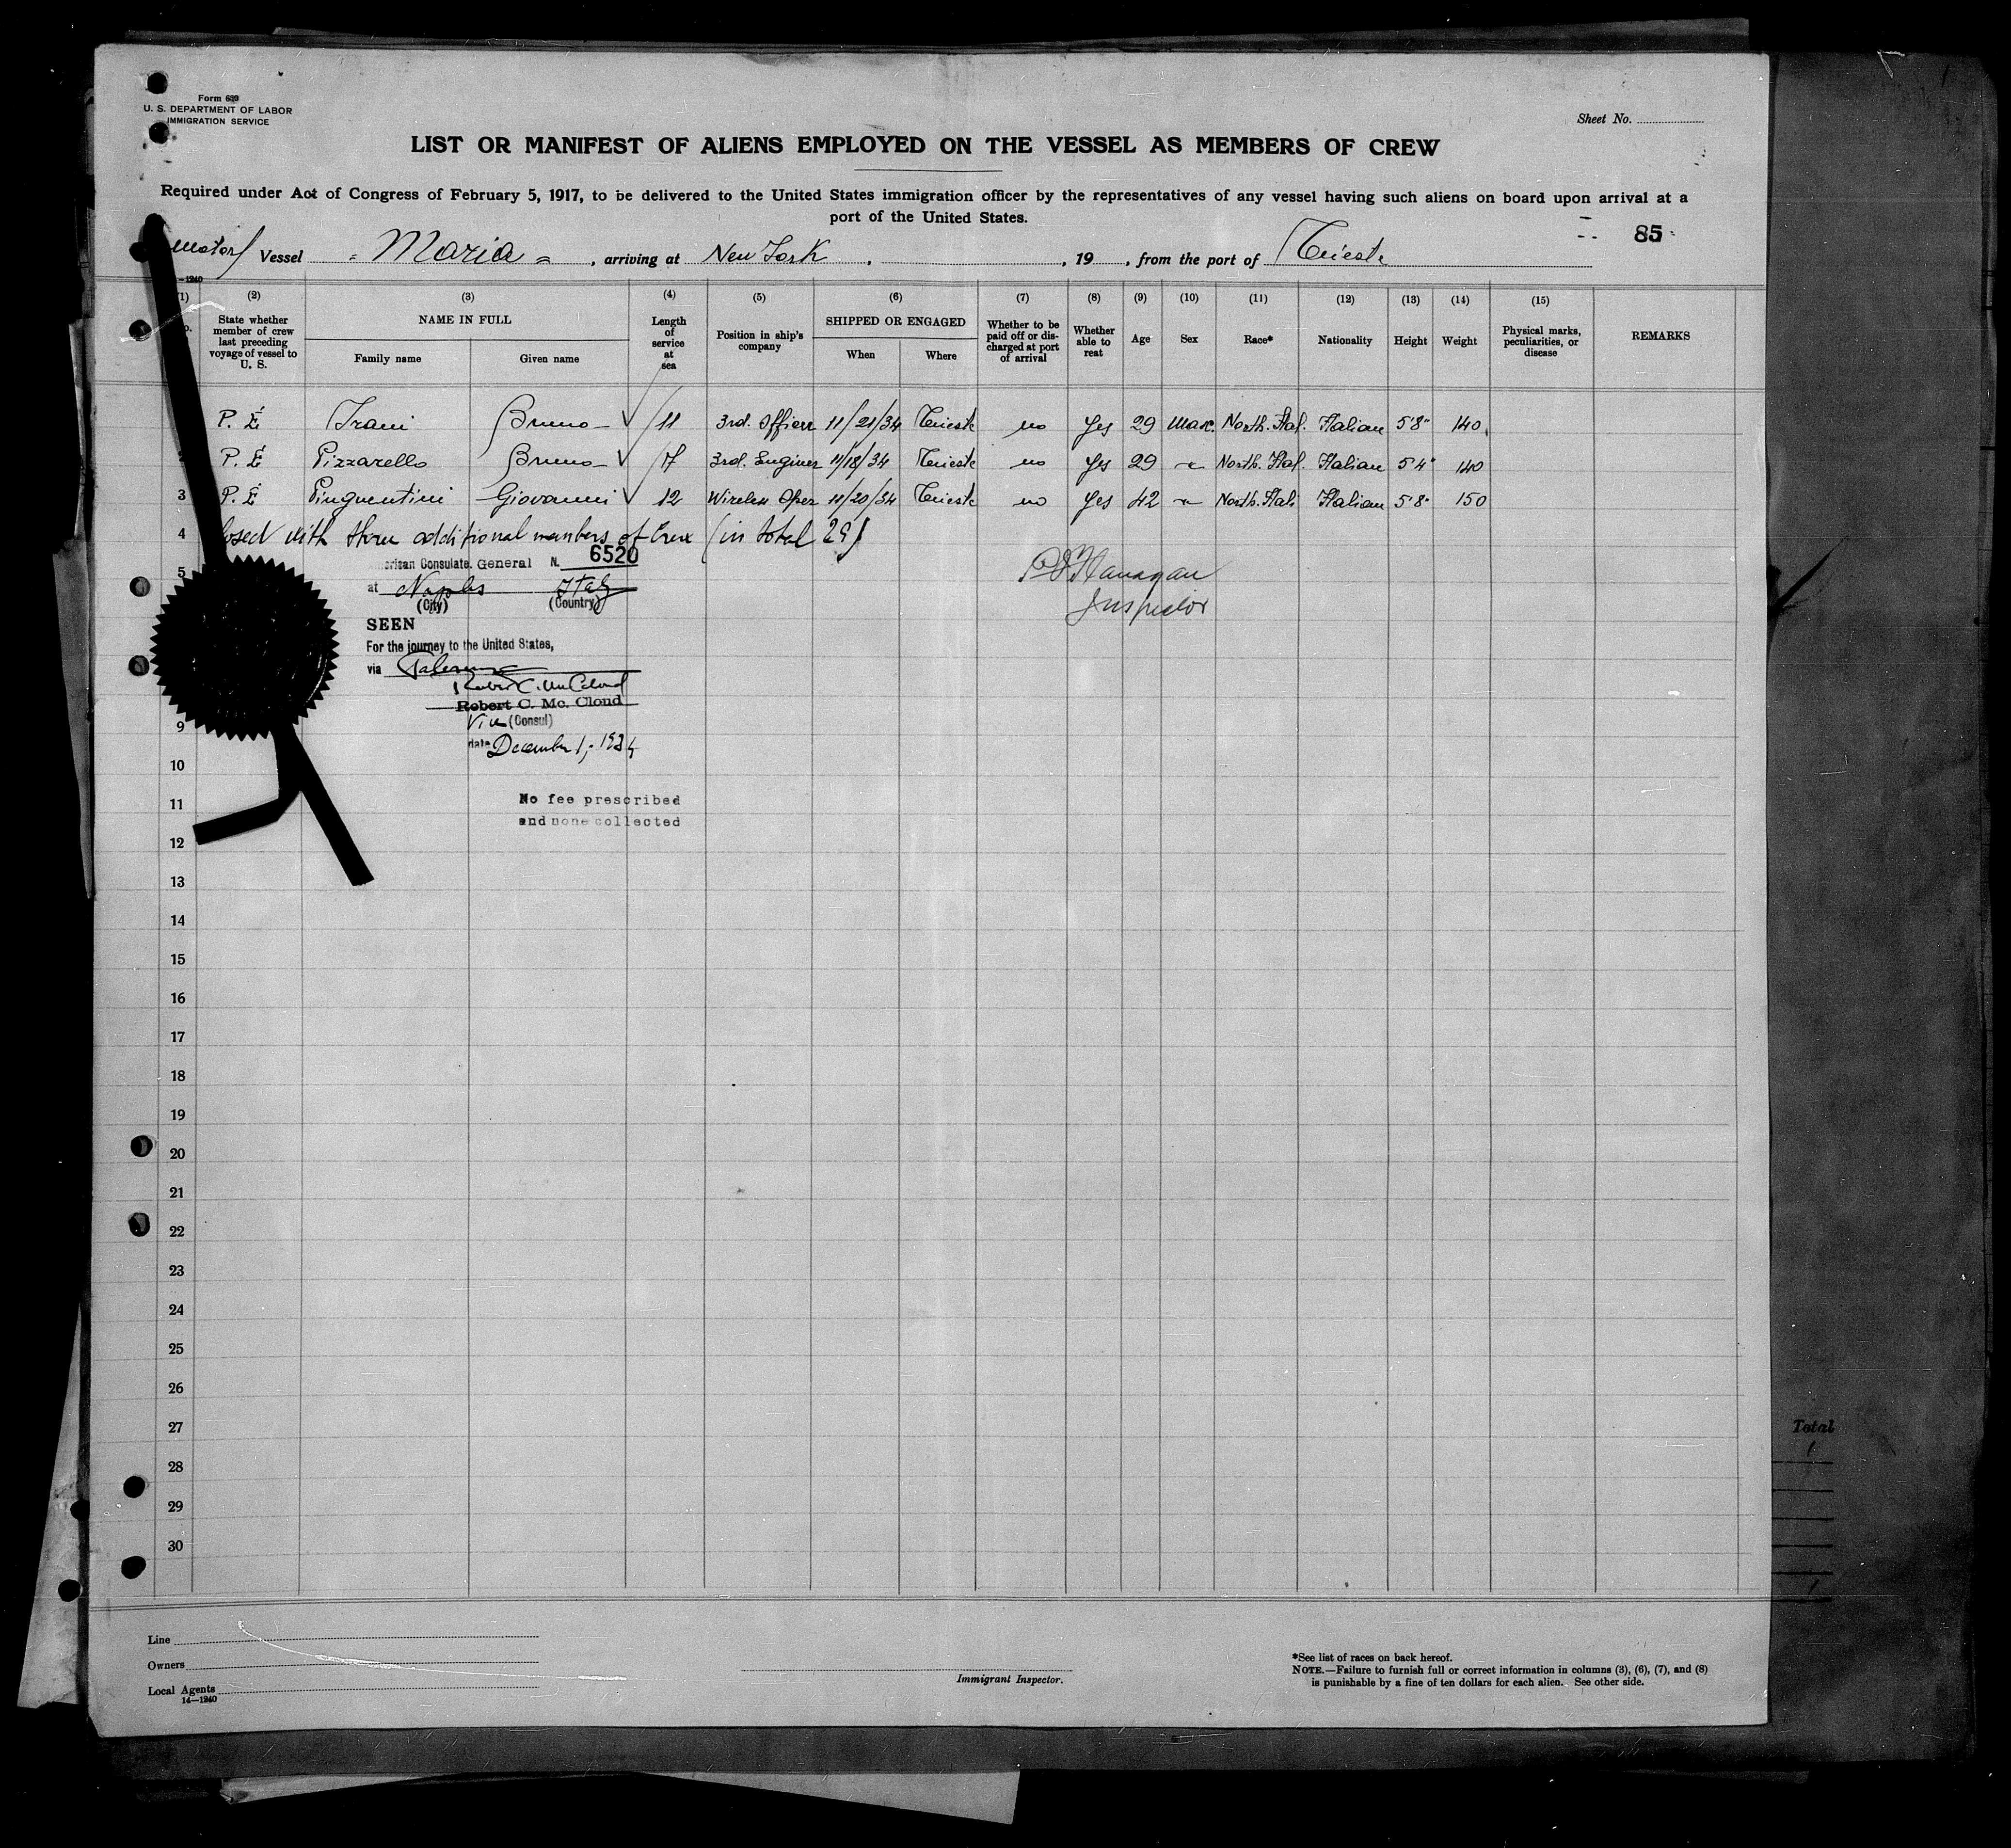 Form 689
U. S. DEPARTMENT OF LABOR
IMMIGRATION SERVICE
Sheet No.
LIST OR MANIFEST OF ALIENS EMPLOYED ON THE VESSEL AS MEMBERS OF CREW
Required under Act of Congress of February 5, 1917, to be delivered to the United States immigration officer by the representatives of any vessel having such aliens on board upon arrival at a
port of the United States.
85
Motor Vessel Maria, arriving at New York, 19, from the port of Trieste
(1) (2) (3) (4) (5) (6) (7) (8) (9) (10) (11) (12) (13) (14) (15)
State whether member of crew last preceding voyage of vessel to U. S.
NAME IN FULL
Family name Given name
Length of service at sea
Position in ship's company
SHIPPED OR ENGAGED
When Where
Whether to be paid off or discharged at port of arrival
Whether able to reat
Age Sex Race* Nationality Height Weight
Physical marks, peculiarities, or disease
REMARKS
P. E Bruno 11 3rd. Officer 11/21/34 Trieste no yes 29 North. Ital. Italian 5'8" 140
P. E Pizzarello Bruno 7 3rd. Enginer 11/18/34 Trieste no yes 29 North. Ital. Italian 5'4" 140
3 P. E Pinguentini Giovanni 12 Wireless Oper 11/20/34 Trieste no yes 42 North. Itali Italian 5'8" 150
4 with three additional members of Crew (in total 29)
5
American Consulate General N. 6520
at Naples Italy
(City) (Country)
SEEN
For the journey to the United States,
via Palermo
Robert C. McCloud
Robert C. Mc. Cloud
Vice (Consul)
date December 1, 1934
No fee prescribed
and none collected
Flanagan
Inspector
9
10
11
12
13
14
15
16
17
18
19
20
21
22
23
24
25
26
27
28
29
30
Total
Line
Owners
Local Agents
14—1240
Immigrant Inspector.
*See list of races on back hereof.
NOTE.—Failure to furnish full or correct information in columns (3), (6), (7), and (8)
is punishable by a fine of ten dollars for each alien. See other side.